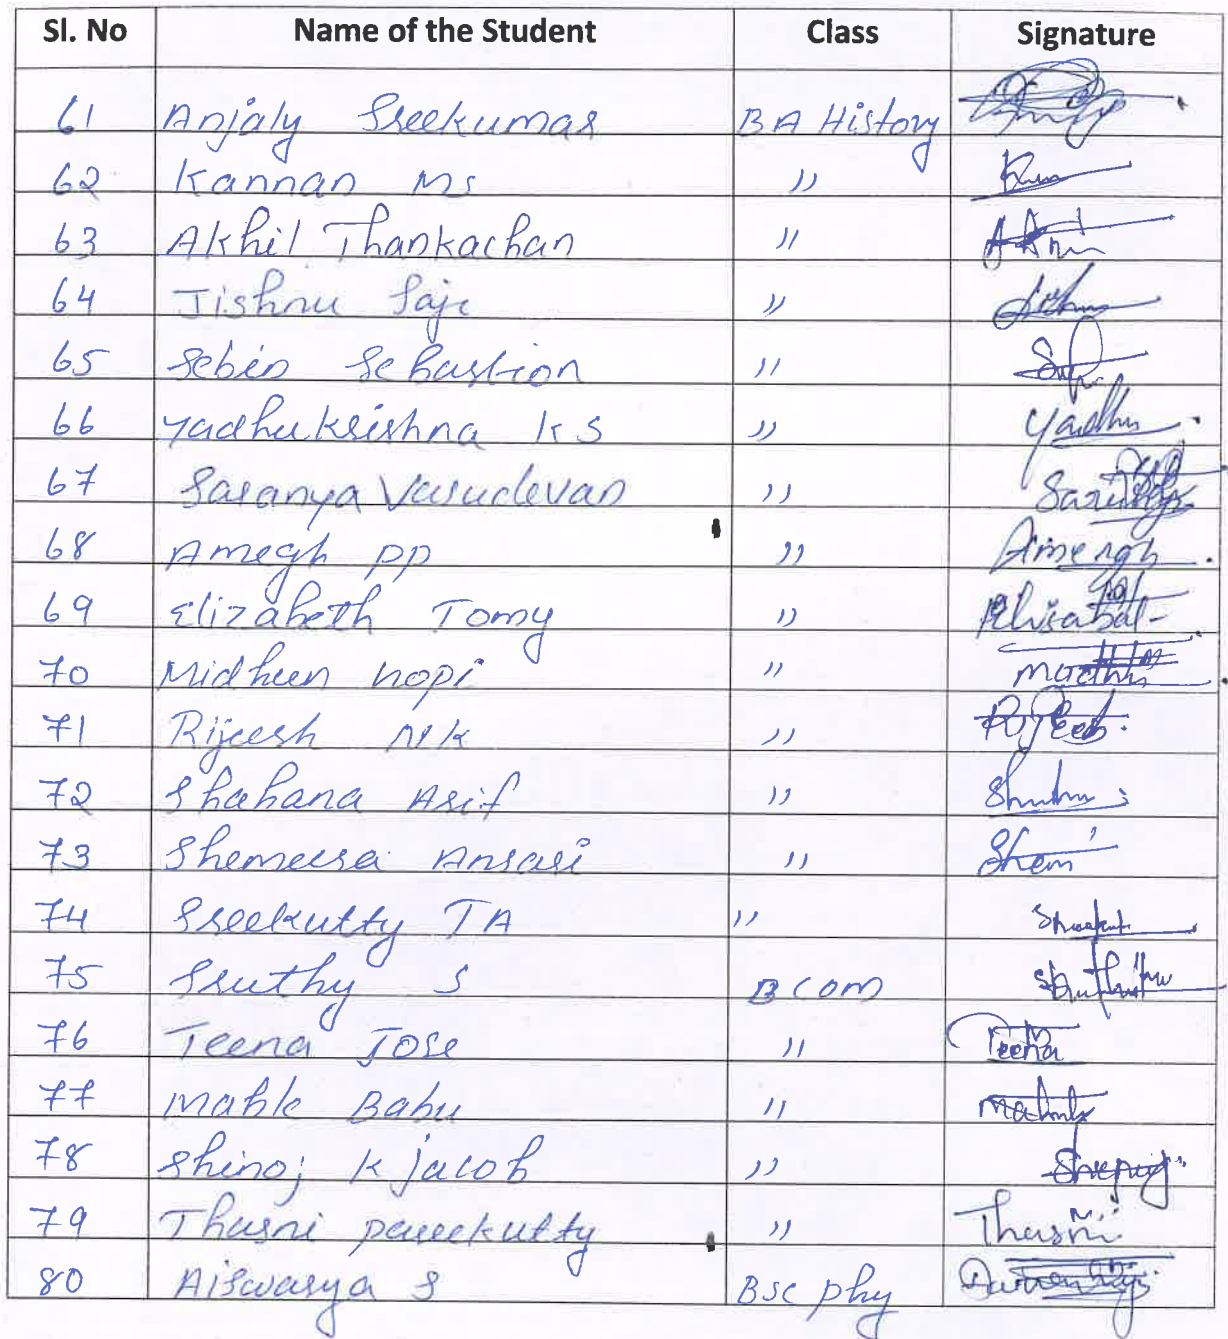 Sl. No Name of the Student Class Signature
61 Anjaly Sreekumar BA History
62 Kannan Ms ,,
63 Akhil Thankachan ,,
64 Jishnu Saji ,,
65 Sebin Sebastion ,,
66 Yadhukrishna K S ,, Yadhu
67 Saranya Vasudevan ,,
68 Amegh PP ,,
69 Elizabeth Tomy ,,
70 Midheen nopi ,,
71 Rijeesh NK ,,
72 Shahana Asif ,,
73 Shemeera Ansari ,, Shem
74 Sreekutty TA ,,
75 Sruthy S B com
76 Teena Jose ,, Teena
77 Mable Babu ,,
78 Shinoj K jacob ,,
79 Thasni pareekutty ,, Thasni
80 Aiswarya S BSc phy